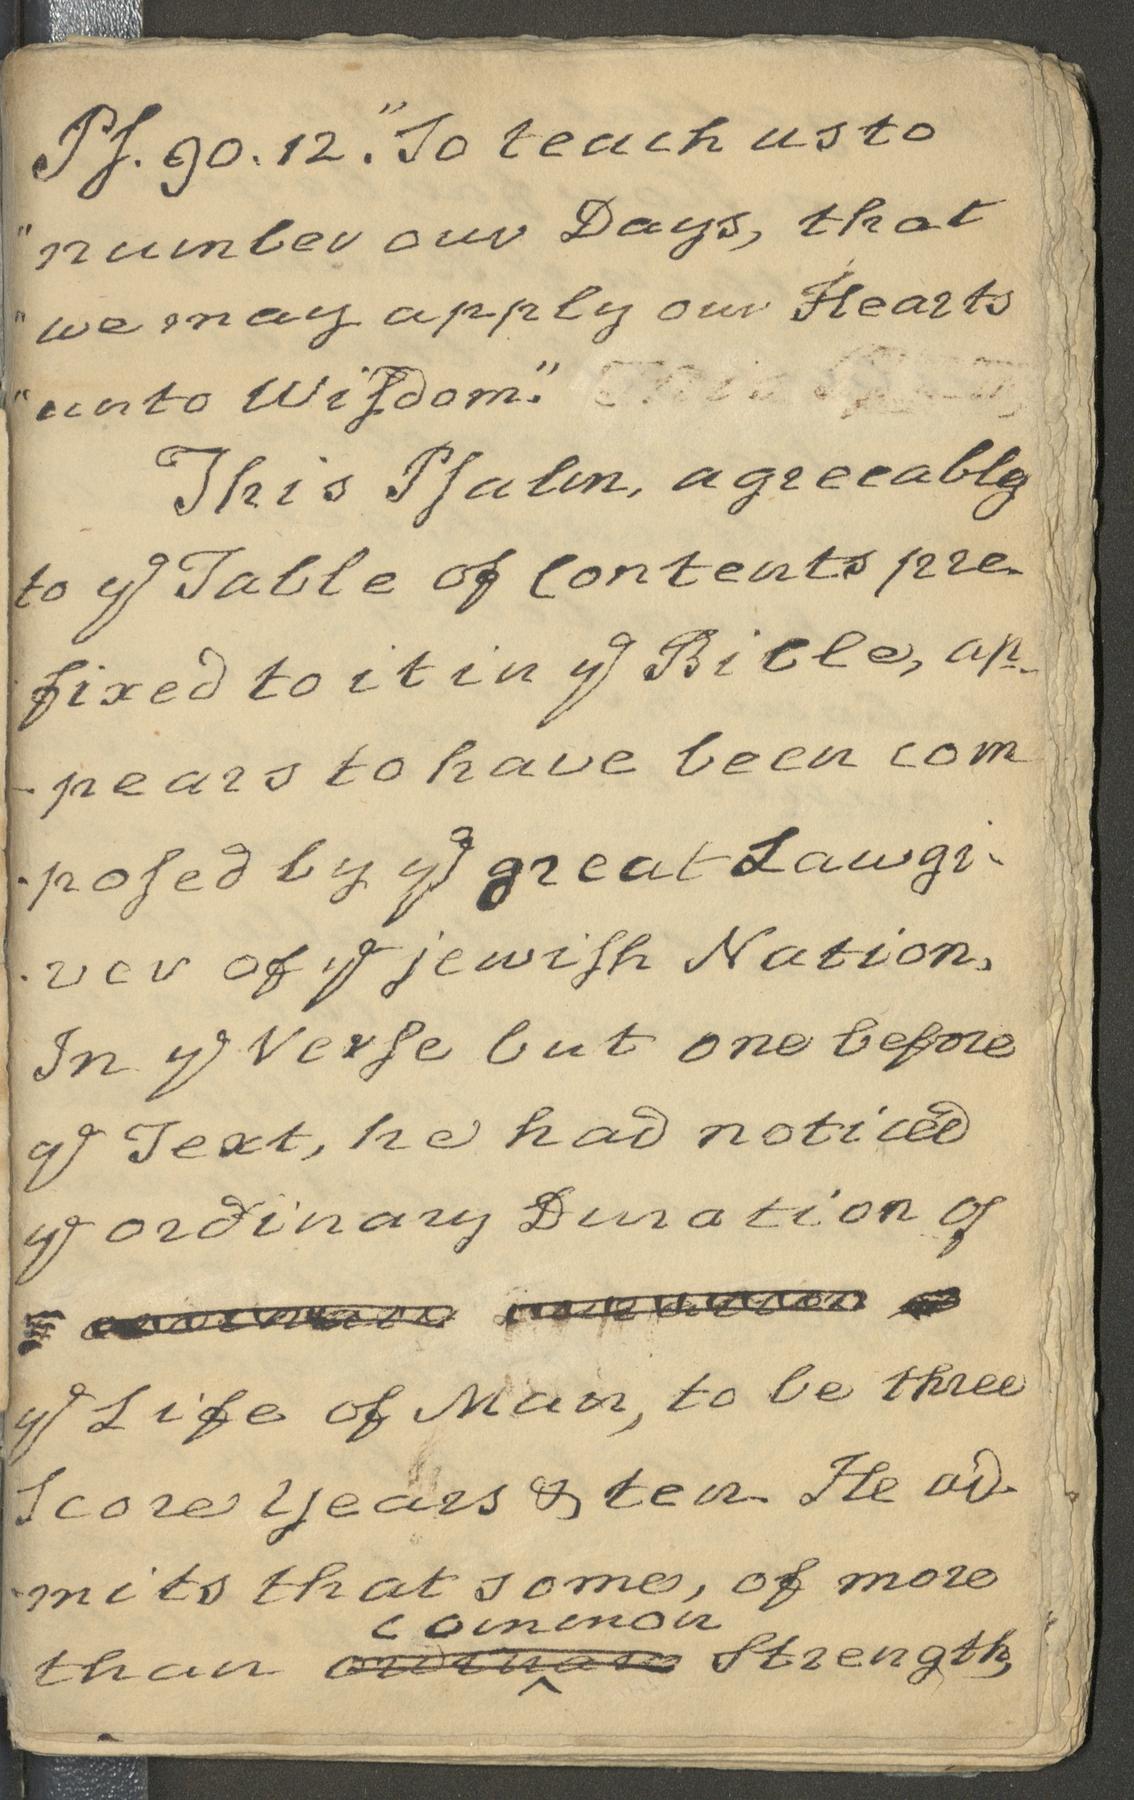 Ps. 90. 12. "So teach us to
"number our Days, that
"we may apply our Hearts
"unto Wisdom."
This Psalm, agreeably
to ye Table of Contents pre-
fixed to it in ye Bible, ap-
-pears to have been com
-posed by ye great Lawgi-
-ver of ye jewish Nation.
In ye Verse but one before
ye Text, he had noticed
ye ordinary Duration of
ye Life of Man, to be three
Score Years & ten. He ad-
-mits that some, of more
common
than ordinary Strength,